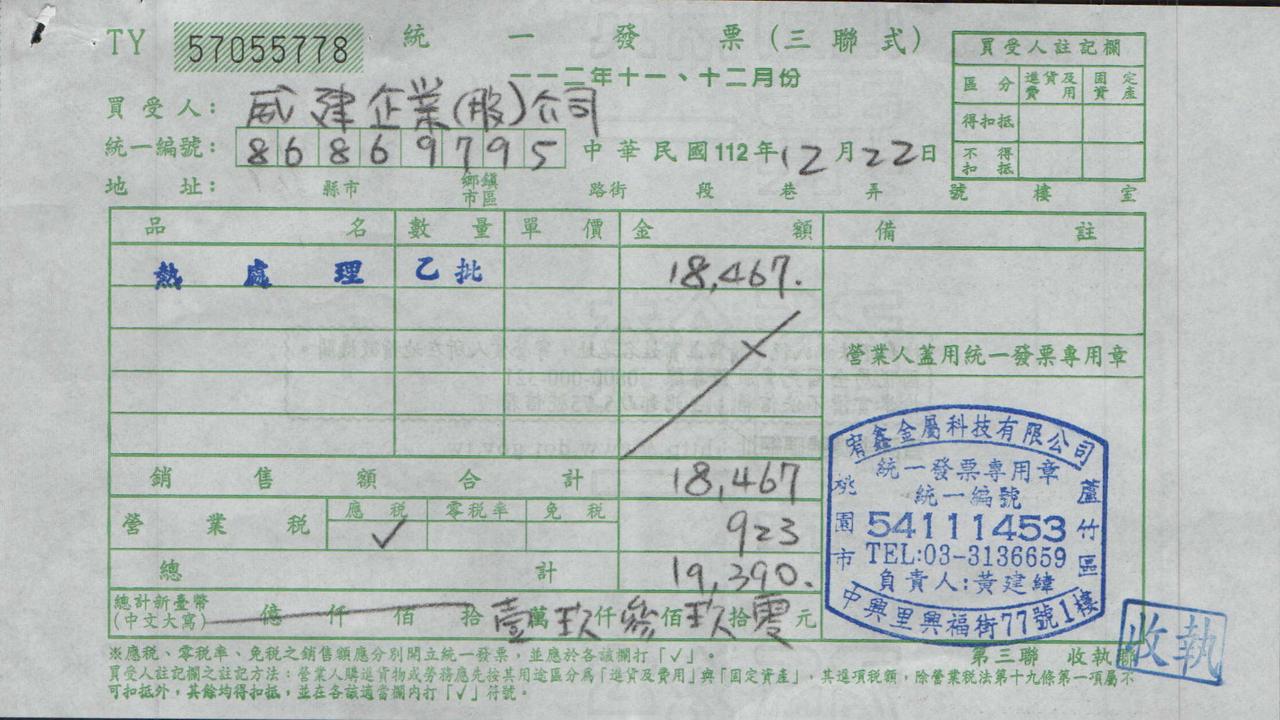 TY 57055778 統一發票(三聯式)
一一二年十一、十二月份
買受人註記欄
區分 進貨及費用 固定資產
得扣抵
不得扣抵
買受人: 威建企業(股)公司
統一編號: 86869795 中華民國112年12月22日
地址: 縣市 鄉鎮市區 路街 段 巷 弄 號 樓 室
品名 數量 單價 金額 備註
熱處理 乙批 18,467.
營業人蓋用統一發票專用章
銷售額合計 18,467
營業稅 應稅 ✓ 零稅率 免稅 923
總計 19,390.
總計新臺幣(中文大寫) 億仟佰拾壹萬玖仟參佰玖拾零元
宥鑫金屬科技有限公司
統一發票專用章
統一編號
54111453
TEL:03-3136659
負責人:黃建緯
桃園市
蘆竹區
中興里興福街77號1樓
※應稅、零稅率、免稅之銷售額應分別開立統一發票,並應於各該欄打「✓」。
第三聯 收執聯
收執
買受人註記欄之註記方法:營業人購進貨物或勞務應先按其用途區分為「進貨及費用」與「固定資產」,其進項稅額,除營業稅法第十九條第一項屬不
可扣抵外,其餘均得扣抵,並在各該適當欄內打「✓」符號。